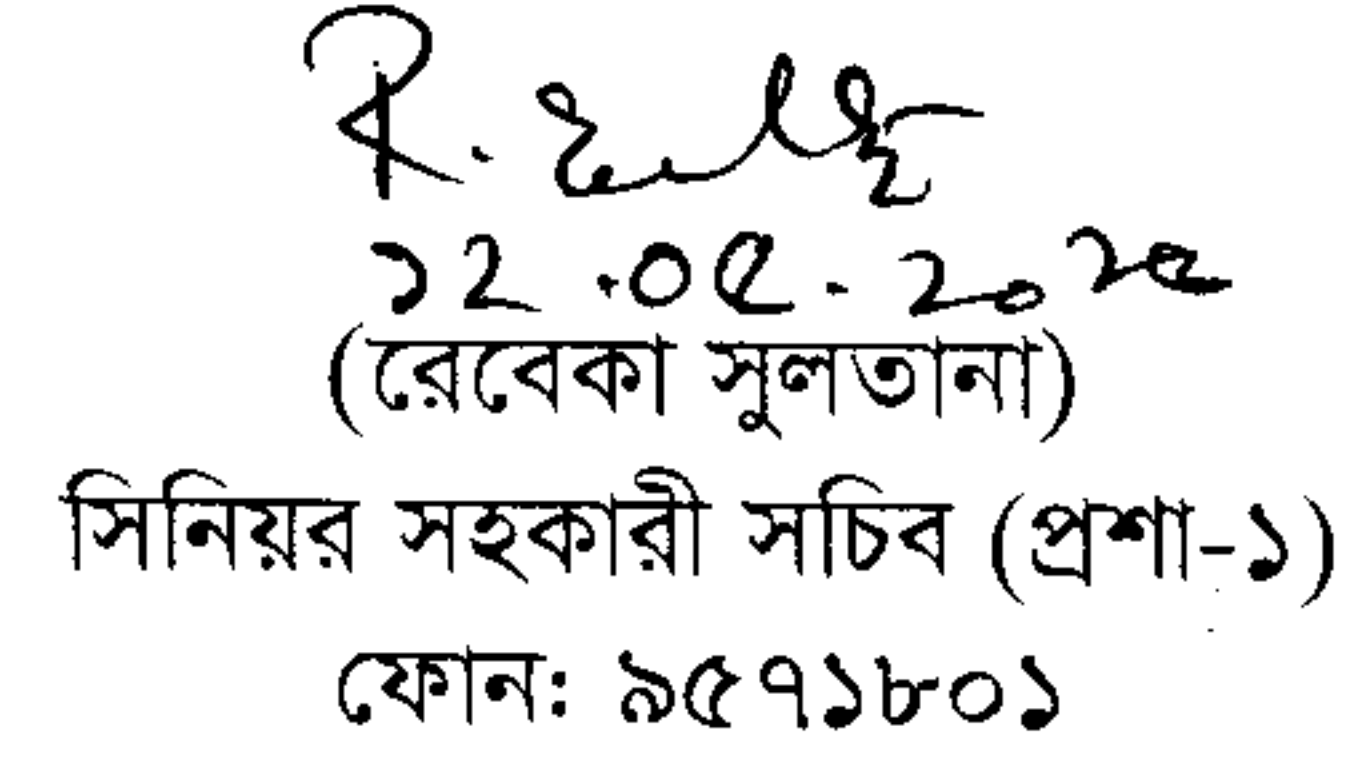 ১২.০৫.২০২৫
(রেবেকা সুলতানা)
সিনিয়র সহকারী সচিব (প্রশা-১)
ফোন: ৯৫৭১৮০১